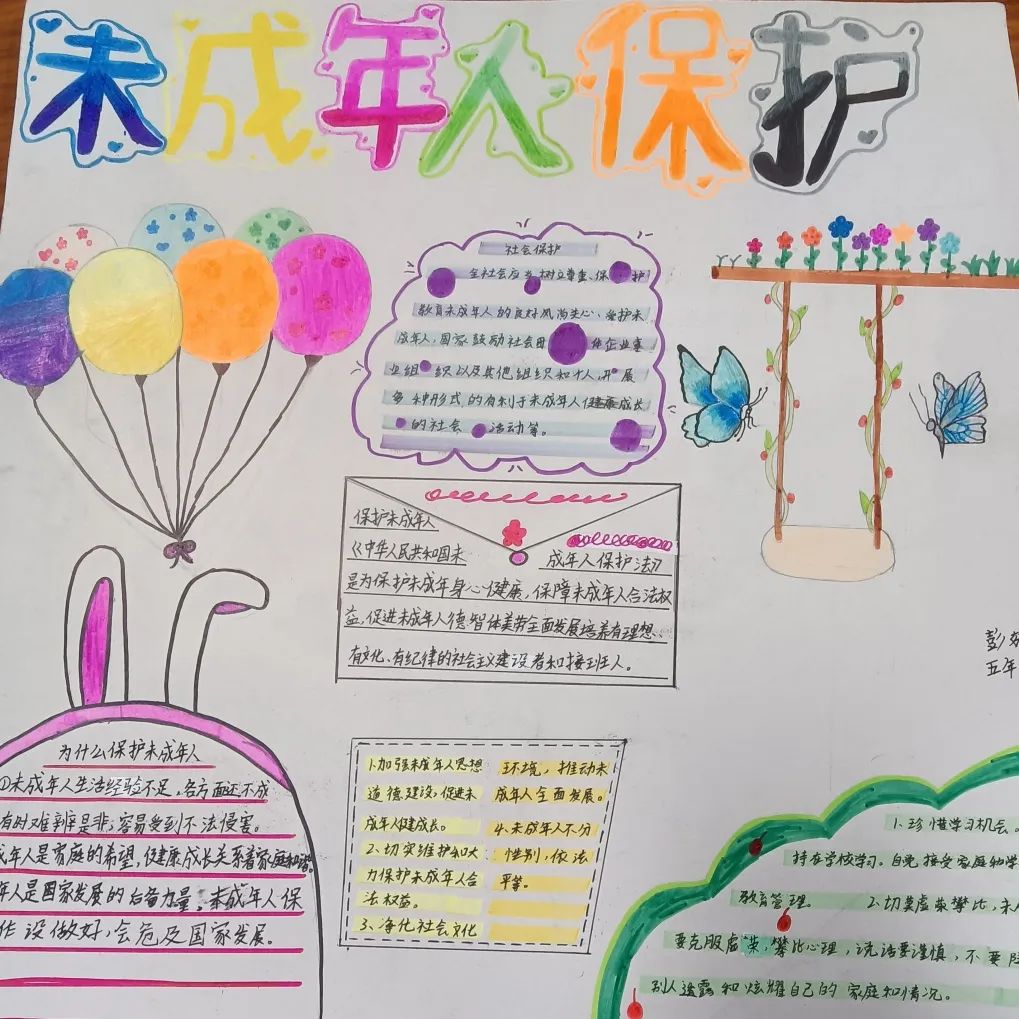 未成年人保护
社会保护
全社会应当树立尊重、保护
教育未成年人的良好风尚关心、爱护未
成年人,国家鼓励社会团体企业事
业组织以及其他组织和个人,开展
多种形式的有利于未成年人健康成长
的社会活动等。
保护未成年人
《中华人民共和国未成年人保护法》
是为保护未成年身心健康,保障未成年人合法权
益,促进未成年人德智体美劳全面发展培养有理想、
有文化、有纪律的社会主义建设者和接班人。
彭
五年
为什么保护未成年人
①未成年人生活经验不足,各方面还不成
有时难辨是非,容易受到不法侵害。
成年人是家庭的希望,健康成长关系着家庭和谐。
年人是国家发展的后备力量,未成年人保
作没做好,会危及国家发展。
1.加强未成年人思想
道德建设,促进未
成年人健成长。
2、切实维护和大
力保护未成年人合
法权益。
3、净化社会文化
环境,推动未
成年人全面发展。
4、未成年人不分
性别,依法
平等。
1、珍惜学习机会。
持在学校学习。自觉接受家庭和学
教育管理。 2、切莫虚荣攀比,未
要克服虚荣,攀比心理,说话要谨慎,不要
别人透露和炫耀自己的家庭和情况。